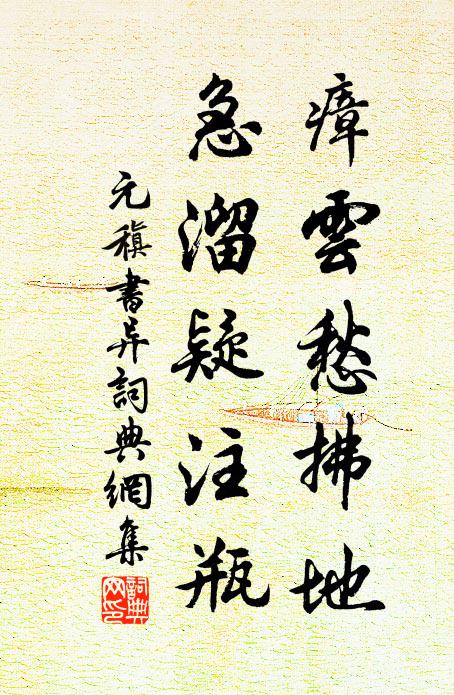 瘴雲愁拂地
急溜疑注瓶
元稹書异詞典網集
詞典網印